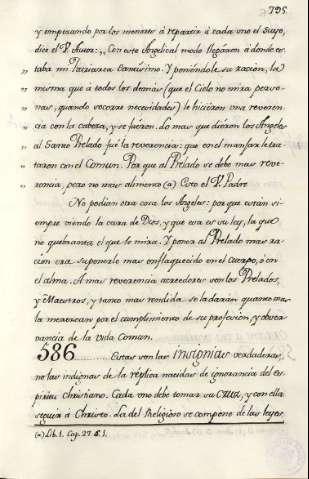 795
y empezando por los menores á repartir á cada uno el suyo,
dice el V. Autor: „Con este Angelical modo llegáron á donde es-
„ taba mi Patriarca Santísimo. Y poniéndole su racion, la
„ misma que á todos los demas (que el Cielo no mira perso-
„ nas, quando socorre necesidades) le hiciéron una reveren-
„ cia con la cabeza, y se fuéron. Lo mas que diéron los Angeles
„ al Santo Prelado fué la reverencia: que en el manjar le tra-
„ taron con el Comun. Por que al Prelado se debe mas reve-
„ rencia, pero no mas alimento (a) Esto el V. Padre
No podian otra cosa los Angeles: por que están si-
empre viendo la cara de Dios, y que esa es su ley, la que
no quebranta el que le mira. Y poner al Prelado mas ra-
cion era suponerle mas enflaquecido en el cuerpo, ó en
el alma. A mas reverencia acreedores son los Prelados,
y Maestros, y tanto mas rendida se la darán quanto mas
la merezcan por el cumplimiento de su profesion, y obser-
vancia de la vida Comun.
586 Estas son las insignias verdaderas,
no las indignas de la réplica nacidas de ignorancia del es-
píritu Christiano. Cada uno debe tomar su Cruz, y con ella
seguir á Christo. La del Religioso se compone de las leyes
(a) Lib. 1. Cap. 27. §. 1.